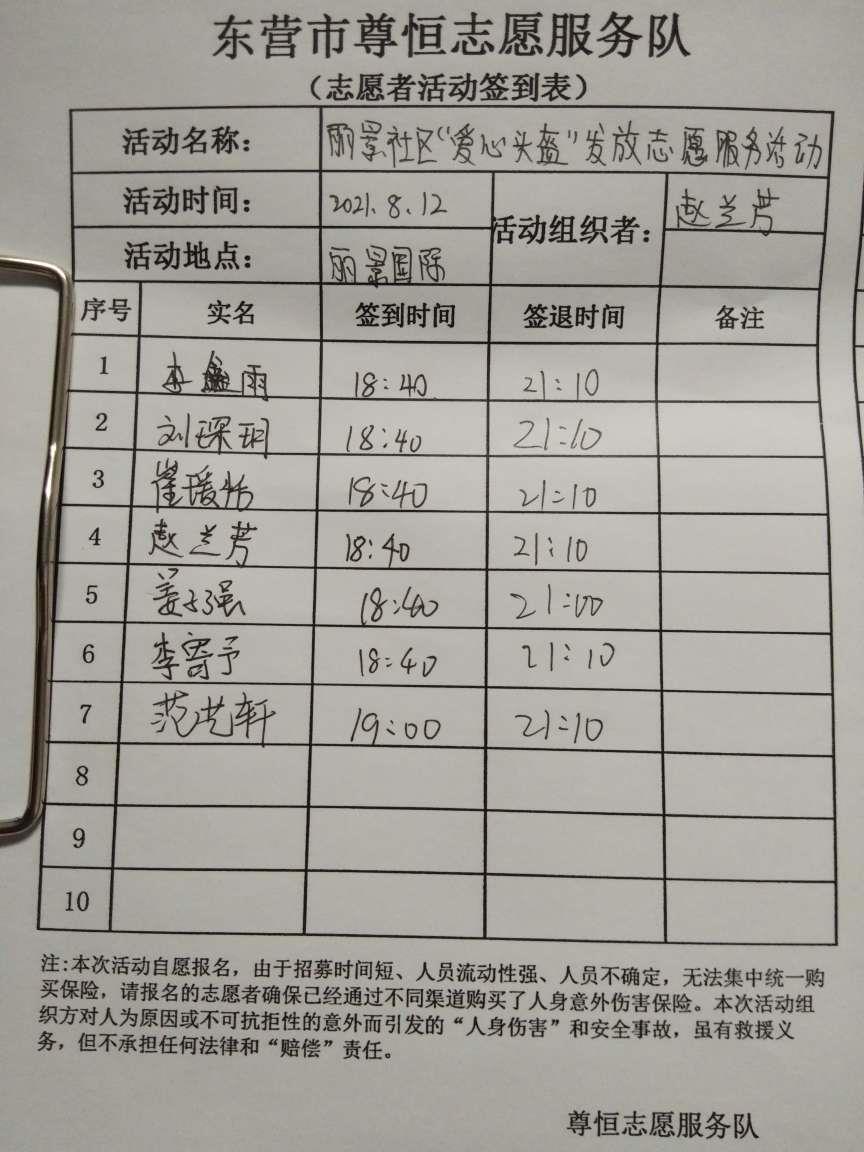 东营市尊恒志愿服务队
（志愿者活动签到表）
活动名称： 丽景社区“爱心头盔”发放志愿服务活动
活动时间： 2021.8.12 活动组织者： 赵兰芳
活动地点： 丽景国际
序号 实名 签到时间 签退时间 备注
1 李鑫雨 18:40 21:10
2 刘琛玥 18:40 21:10
3 崔瑗恬 18:40 21:10
4 赵兰芳 18:40 21:10
5 姜 强 18:40 21:00
6 李寄予 18:40 21:10
7 范艺轩 19:00 21:10
8
9
10
注：本次活动自愿报名，由于招募时间短、人员流动性强、人员不确定，无法集中统一购
买保险，请报名的志愿者确保已经通过不同渠道购买了人身意外伤害保险。本次活动组
织方对人为原因或不可抗拒性的意外而引发的“人身伤害”和安全事故，虽有救援义
务，但不承担任何法律和“赔偿”责任。
尊恒志愿服务队